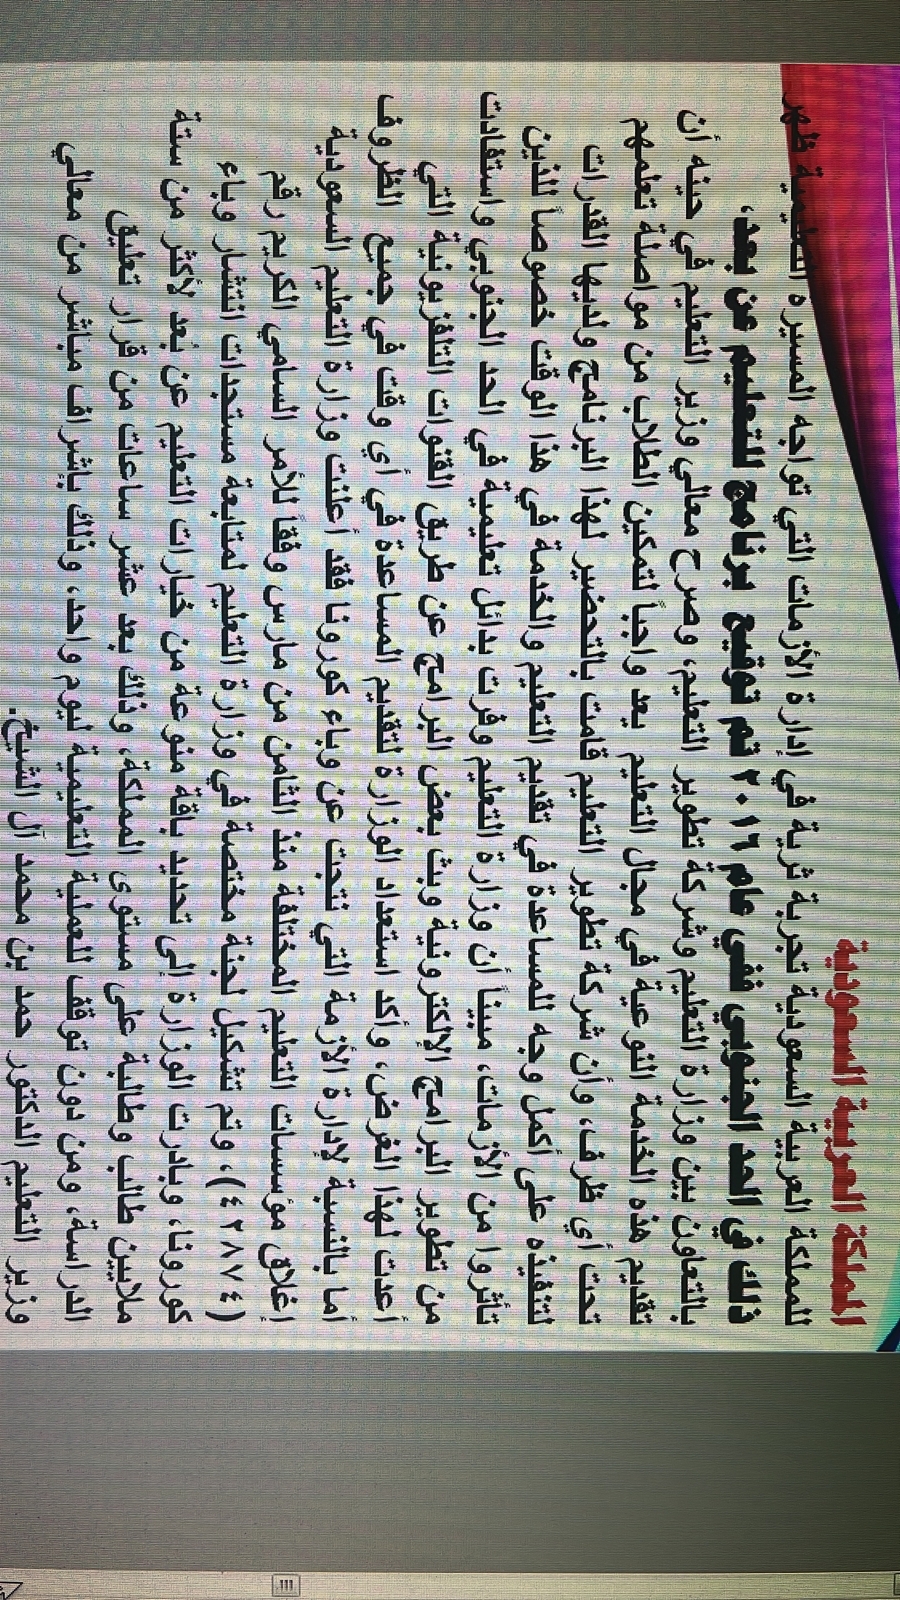 المملكة العربية السعودية
للمملكة العربية السعودية تجربة ثرية في إدارة الأزمات التي تواجه المسيرة التعليمية ظهر
ذلك في الحد الجنوبي ففي عام ٢٠١٦ تم توقيع برنامج للتعليم عن بعد،
بالتعاون بين وزارة التعليم وشركة تطوير التعليم، وصرح معالي وزير التعليم في حينه أن
تقديم هذه الخدمة النوعية في مجال التعليم يعد واجباً لتمكين الطلاب من مواصلة تعلمهم
تحت أي ظرف، وأن شركة تطوير التعليم قامت بالتحضير لهذا البرنامج ولديها القدرات
لتنفيذه على أكمل وجه للمساعدة في تقديم التعليم والخدمة في هذا الوقت خصوصاً للذين
تأثروا من الأزمات، مبيناً أن وزارة التعليم وفرت بدائل تعليمية في الحد الجنوبي واستفادت
من تطوير البرامج الإلكترونية وبث بعض البرامج عن طريق القنوات التلفزيونية التي
أعدت لهذا الغرض، وأكد استعداد الوزارة لتقديم المساعدة في أي وقت في جميع الظروف
أما بالنسبة لإدارة الأزمة التي نتجت عن وباء كورونا فقد أعلنت وزارة التعليم السعودية
إغلاق مؤسسات التعليم المختلفة منذ الثامن من مارس وفقاً للأمر السامي الكريم رقم
(٤٢٨٧٤)، وتم تشكيل لجنة مختصة في وزارة التعليم لمتابعة مستجدات انتشار وباء
كورونا، وبادرت الوزارة إلى تحديد باقة منوعة من خيارات التعليم عن بُعد لأكثر من ستة
ملايين طالب وطالبة على مستوى المملكة، وذلك بعد عشر ساعات من قرار تعليق
الدراسة، ومن دون توقف للعملية التعليمية ليوم واحد، وذلك بإشراف مباشر من معالي
وزير التعليم الدكتور حمد بن محمد آل الشيخ.